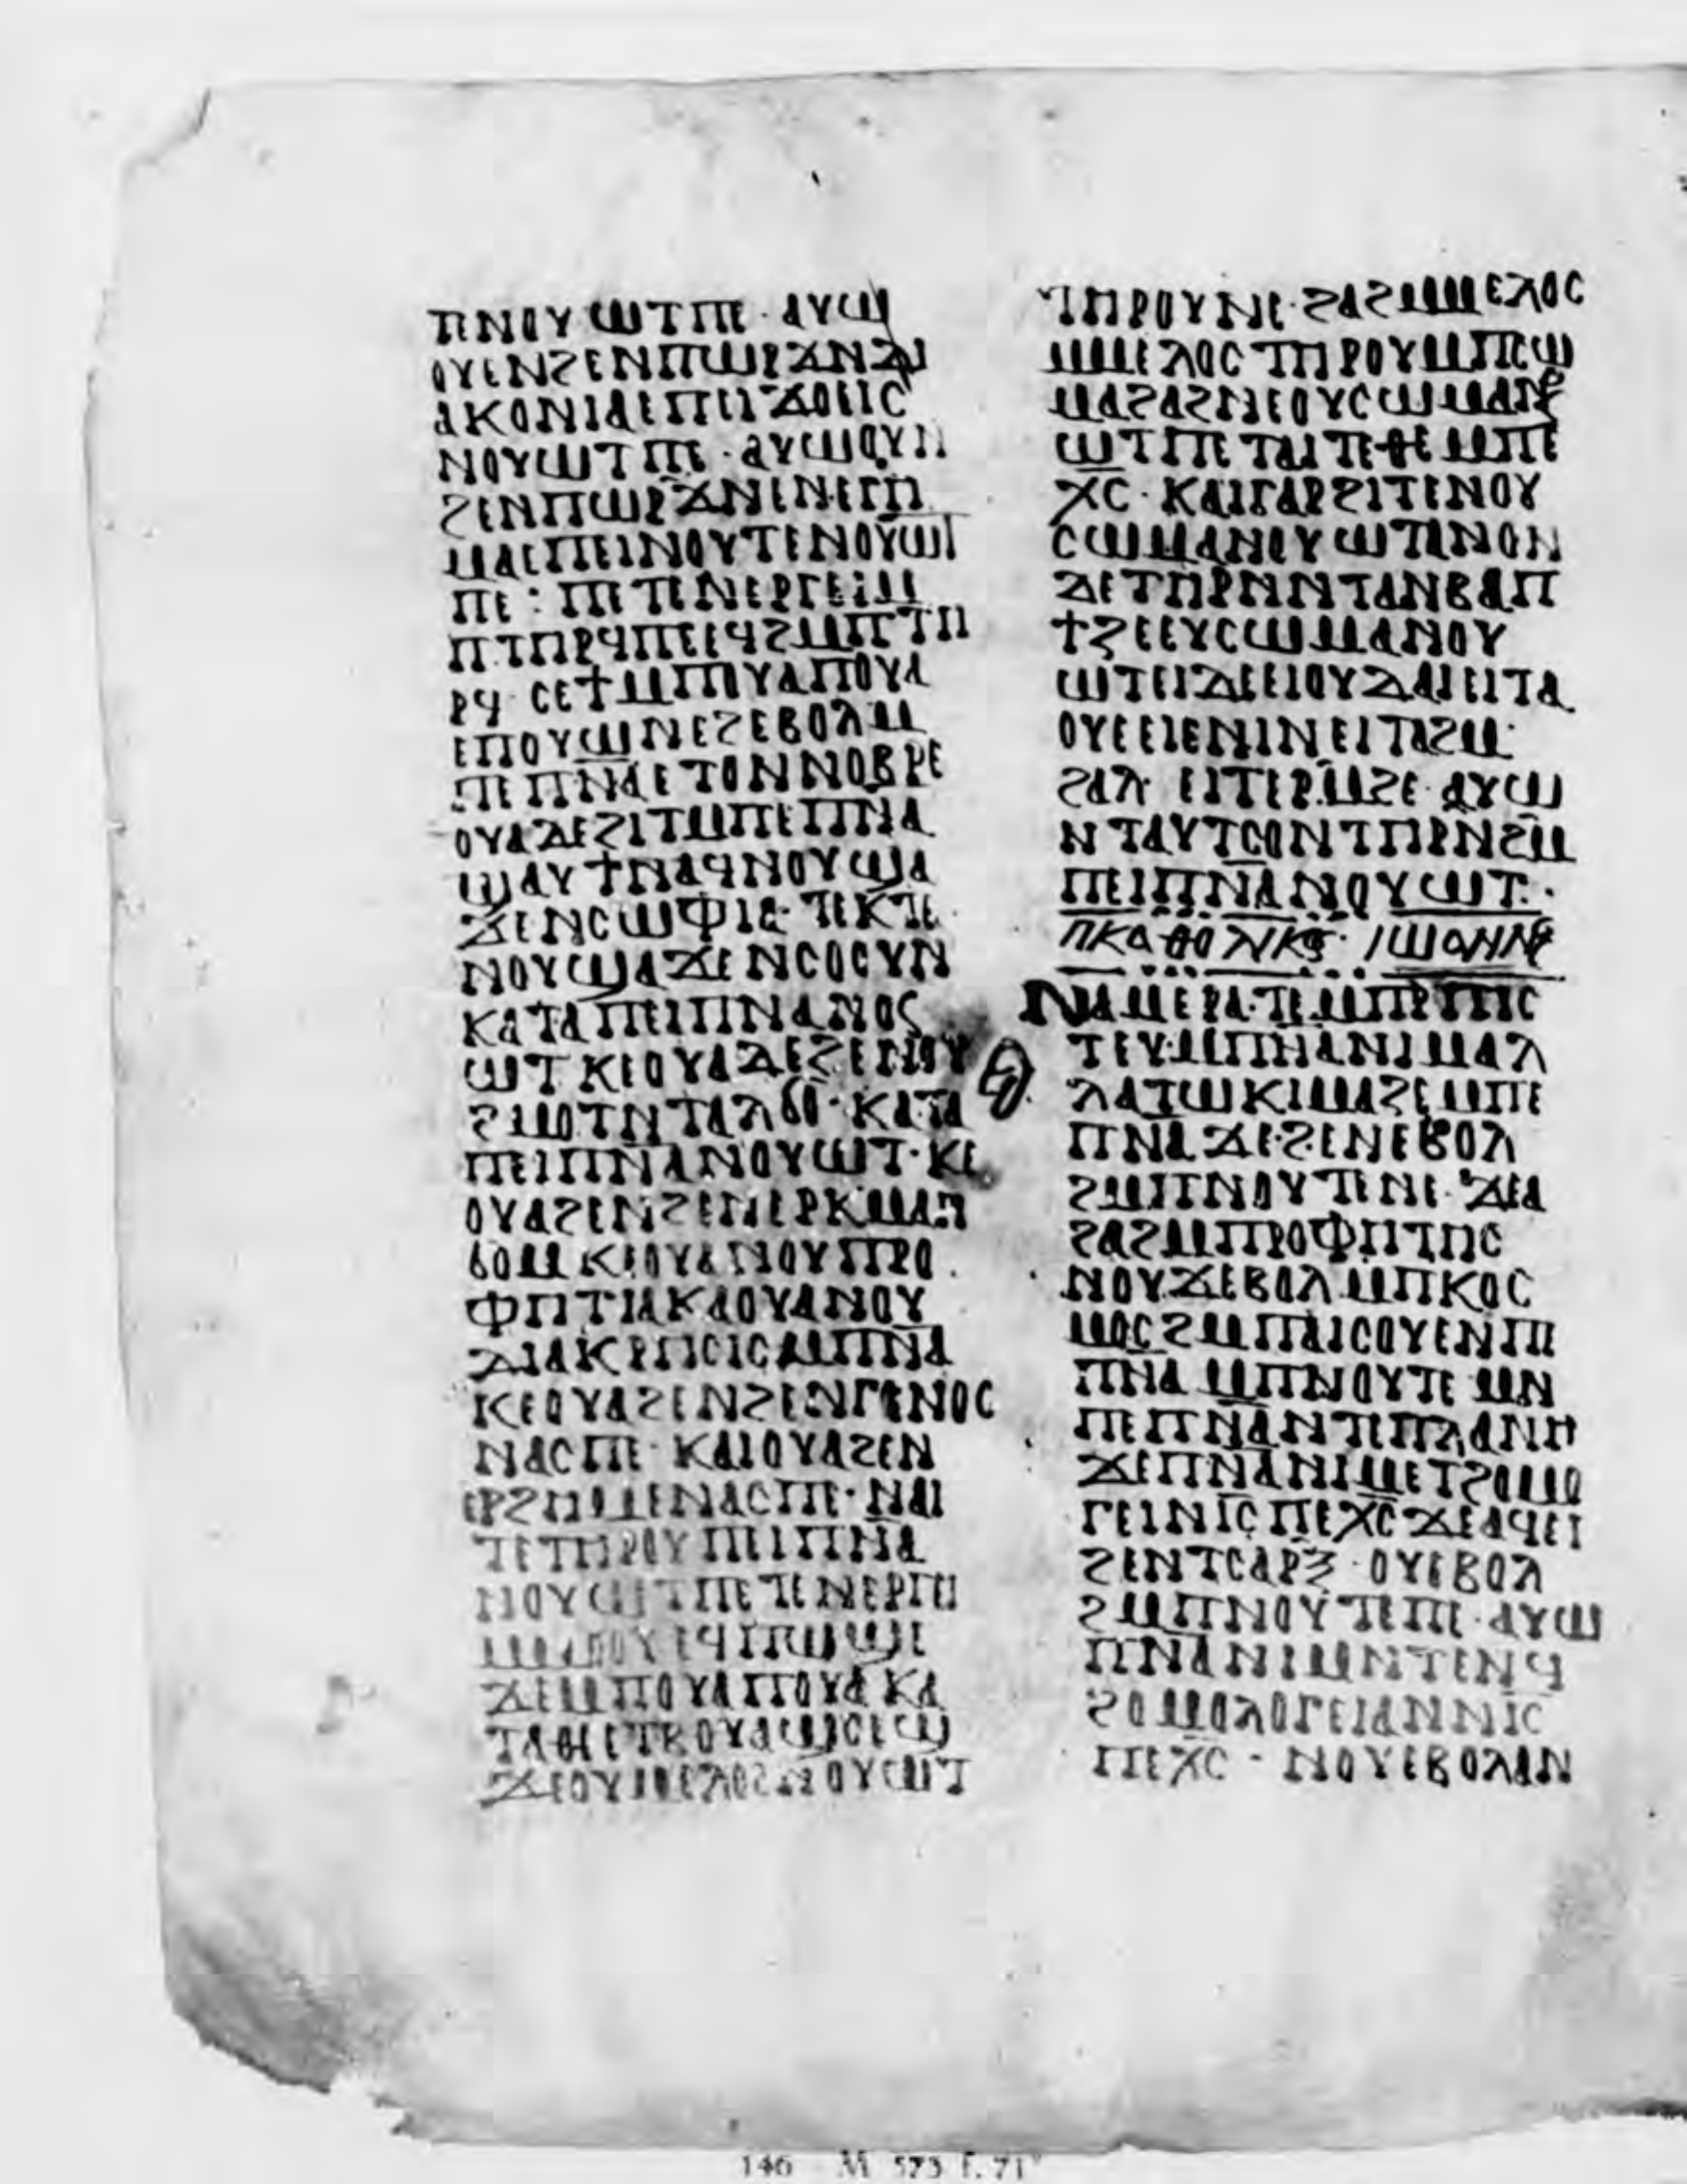 ⲡⲛⲟⲩⲱⲧⲡⲉ · ⲁⲩⲱ
ⲟⲩⲉⲛϩⲉⲛⲡⲱⲣϫⲛⲇⲓ
ⲁⲕⲟⲛⲓⲁⲉⲡⲉⲓϫⲟⲉⲓⲥ
ⲛⲟⲩⲱⲧⲡⲉ · ⲁⲩⲱⲟⲩⲛ
ϩⲉⲛⲡⲱⲣϫⲛⲉⲛⲉⲣⲅⲏ
ⲙⲁⲉⲡⲉⲓⲛⲟⲩⲧⲉⲛⲟⲩⲱⲧ
ⲡⲉ : ⲡⲉⲧⲉⲛⲉⲣⲅⲉⲓⲙ
ⲡⲧⲏⲣϥⲡⲉⲉϥϩⲙⲡⲧⲏ
ⲣϥ · ⲥⲉϯⲙⲡⲟⲩⲁⲡⲟⲩⲁ
ⲉⲡⲟⲩⲱⲛⲉϩⲉⲃⲟⲗⲙ
ⲡⲉⲡⲛ̅ⲁ̅ⲉⲧⲟⲛⲛⲟⲃⲣⲉ
ⲟⲩⲁⲇⲉϩⲓⲧⲙⲡⲉⲡⲛ̅ⲁ̅
ϣⲁⲩϯⲛⲁϥⲛⲟⲩϣⲁ
ϫⲉⲛⲥⲱⲫⲓⲁ · ⲧⲉⲕⲧⲉ
ⲛⲟⲩϣⲁϫⲉⲛⲥⲟⲥⲩⲛ
ⲕⲁⲧⲁⲡⲉⲓⲡⲛ̅ⲁ̅ⲛⲟⲥ
ⲱⲧⲕⲉⲟⲩⲁⲇⲉϩⲉⲛⲟⲩ
ϩⲙⲟⲧⲛⲧⲁⲗϭⲟ · ⲕⲁⲧⲁ
ⲡⲉⲓⲡⲛ̅ⲁ̅ⲛⲟⲩⲱⲧ · ⲕⲉ
ⲟⲩⲁϩⲉⲛϩⲉⲛⲉⲣⲕⲙⲁⲛ
ϭⲟⲙⲕⲉⲟⲩⲁⲛⲟⲩⲡⲣⲟ
ⲫⲏⲧⲓⲁⲕⲁⲟⲩⲁⲛⲟⲩ
ⲇⲓⲁⲕⲣⲏⲥⲓⲥⲙⲡⲛ̅ⲁ̅
ⲕⲉⲟⲩⲁϩⲉⲛϩⲉⲛⲅⲉⲛⲟⲥ
ⲛⲁⲥⲡⲉ · ⲕⲁⲓⲟⲩⲁϩⲉⲛ
ⲉⲣϩⲏⲙⲉⲛⲁⲥⲡⲉ · ⲛⲁⲓ
ⲧⲉⲧⲏⲣⲟⲩⲡⲉⲓⲡⲛ̅ⲁ̅
ⲛⲟⲩⲱⲧⲡⲉⲧⲉⲛⲉⲣⲅⲉⲓ
ⲙⲙⲟⲟⲩⲉϥⲡⲱϣⲉ
ϫⲉⲙⲡⲟⲩⲁⲡⲟⲩⲁⲕⲁ
ⲧⲁⲑⲉⲉⲧⲃⲟⲩⲁϣⲥⲉϣ
ϫⲉⲟⲩⲙⲉⲗⲟⲥⲛⲟⲩⲱⲧ
ⲧⲏⲣⲟⲩⲛⲉ · ϩⲁϩⲙⲙⲉⲗⲟⲥ
ⲙⲙⲉⲗⲟⲥⲧⲏⲣⲟⲩⲙⲡⲥⲱ
ⲙⲁϩⲁϩⲛⲉⲟⲩⲥⲱⲙⲁⲛⲟⲩ
ⲱⲧⲡⲉⲧⲁⲓⲧⲉⲑⲉⲙⲡⲉ
ⲭ̅ⲥ̅ · ⲕⲁⲓⲅⲁⲣϩⲓⲧⲉⲛⲟⲩ
ⲥⲱⲙⲁⲛⲟⲩⲱⲧⲁⲛⲟⲛ
ⲇⲉⲧⲏⲣⲛⲛⲧⲁⲛⲃⲁⲡ
ϯϩⲉⲉⲩⲥⲱⲙⲁⲛⲟⲩ
ⲱⲧⲉⲓⲇⲉⲉⲓⲟⲩⲇⲁⲓⲉⲓⲧⲁ
ⲟⲩⲉⲉⲓⲉⲛⲓⲛⲉⲓⲧⲁϩⲙ
ϩⲁⲗ · ⲉⲓⲧⲉⲣⲙϩⲉ · ⲁⲩⲱ
ⲛⲧⲁⲩⲧⲥⲟⲛⲧⲏⲣⲛϩⲙ
ⲡⲉⲓⲡⲛ̅ⲁ̅ⲛⲟⲩⲱⲧ ·
ⲡⲕⲁⲑⲟⲗⲓⲕⲟ · ⲓⲱⲁⲛⲛⲏ
ⲛⲁⲙⲉⲣⲁⲧⲉⲙⲡⲣⲡⲓⲥ
ⲧⲉⲩⲙⲡⲏⲁⲛⲓⲙⲁⲗ
ⲗⲁⲧⲱⲕⲓⲙⲁϩⲉⲙⲡⲉ
ⲡⲛ̅ⲁ̅ϫⲉϩⲉⲛⲉⲃⲟⲗ
ϩⲙⲡⲛⲟⲩⲧⲉⲛⲉ · ϫⲉⲁ
ϩⲁϩⲙⲡⲣⲟⲫⲏⲧⲏⲥ
ⲛⲟⲩϫⲉⲃⲟⲗⲙⲡⲕⲟⲥ
ⲙⲟⲥϩⲙⲡⲁⲓⲥⲟⲩⲉⲛⲡⲓ
ⲡⲛ̅ⲁ̅ⲙⲡⲛⲟⲩⲧⲉⲙⲛ
ⲡⲉⲡⲛ̅ⲁ̅ⲛⲧⲉⲡⲗⲁⲛⲏ
ϫⲉⲡⲛ̅ⲁ̅ⲛⲓⲙⲉⲧϩⲟⲙⲟ
ⲅⲉⲓⲛⲓ̅ⲥ̅ⲡⲉⲭ̅ⲥ̅ϫⲉⲁϥⲉⲓ
ϩⲉⲛⲧⲥⲁⲣⲝ · ⲟⲩⲉⲃⲟⲗ
ϩⲙⲡⲛⲟⲩⲧⲉⲡⲉ · ⲁⲩⲱ
ⲡⲛ̅ⲁ̅ⲛⲓⲙⲛⲧⲉⲛϥ
ϩⲟⲙⲟⲗⲟⲅⲉⲓⲁⲛⲛⲓ̅ⲥ̅
ⲡⲉⲭ̅ⲥ̅ - ⲛⲟⲩⲉⲃⲟⲗⲁⲛ
146 M 573 f. 71ᵛ